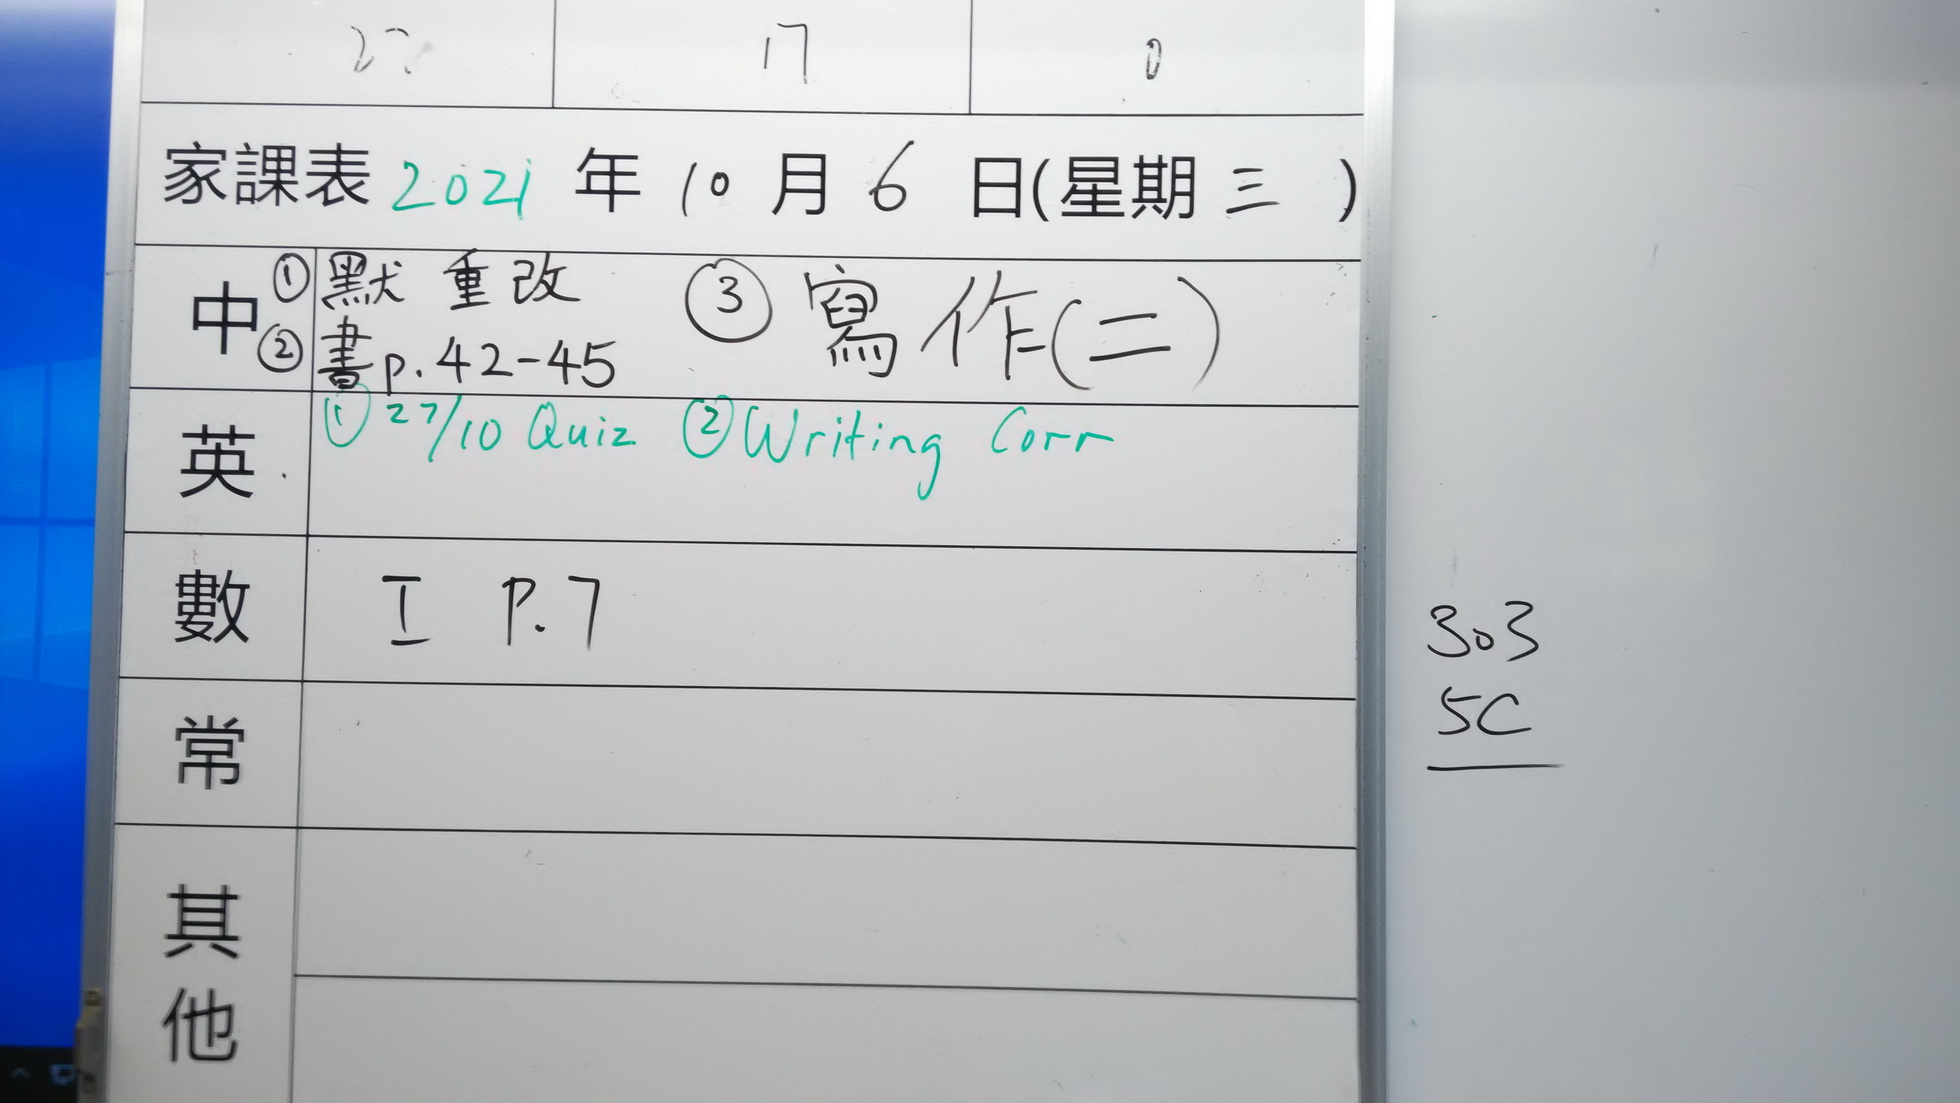 17 0
家課表 2021 年 10 月 6 日(星期 三 )
中 ① 默 重 改 ③ 寫作(二)
② 書 p.42-45
英 ① 27/10 Quiz ② Writing Corr
數 I P.7
常
其他
303
5C